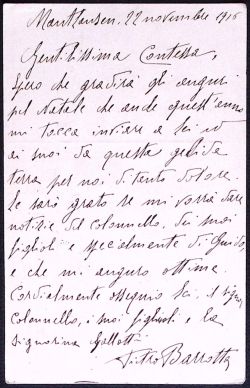 Mauthausen, 22 novembre 1916
Gentilissima Contessa,
Spero che gradirà gli auguri
pel Natale che anche quest'anno
mi tocca inviare a Lei ed
ai suoi da questa gelida
terra per noi di tanto dolore.
Le sarò grato se mi vorrà dare
notizie del colonnello, dei suoi
figlioli e specialmente di Guido,
e che mi auguro ottime.
Cordialmente ossequio Lei, il signor
Colonnello, i suoi figlioli e la
Signorina Gallotti
Pietro Barrotta